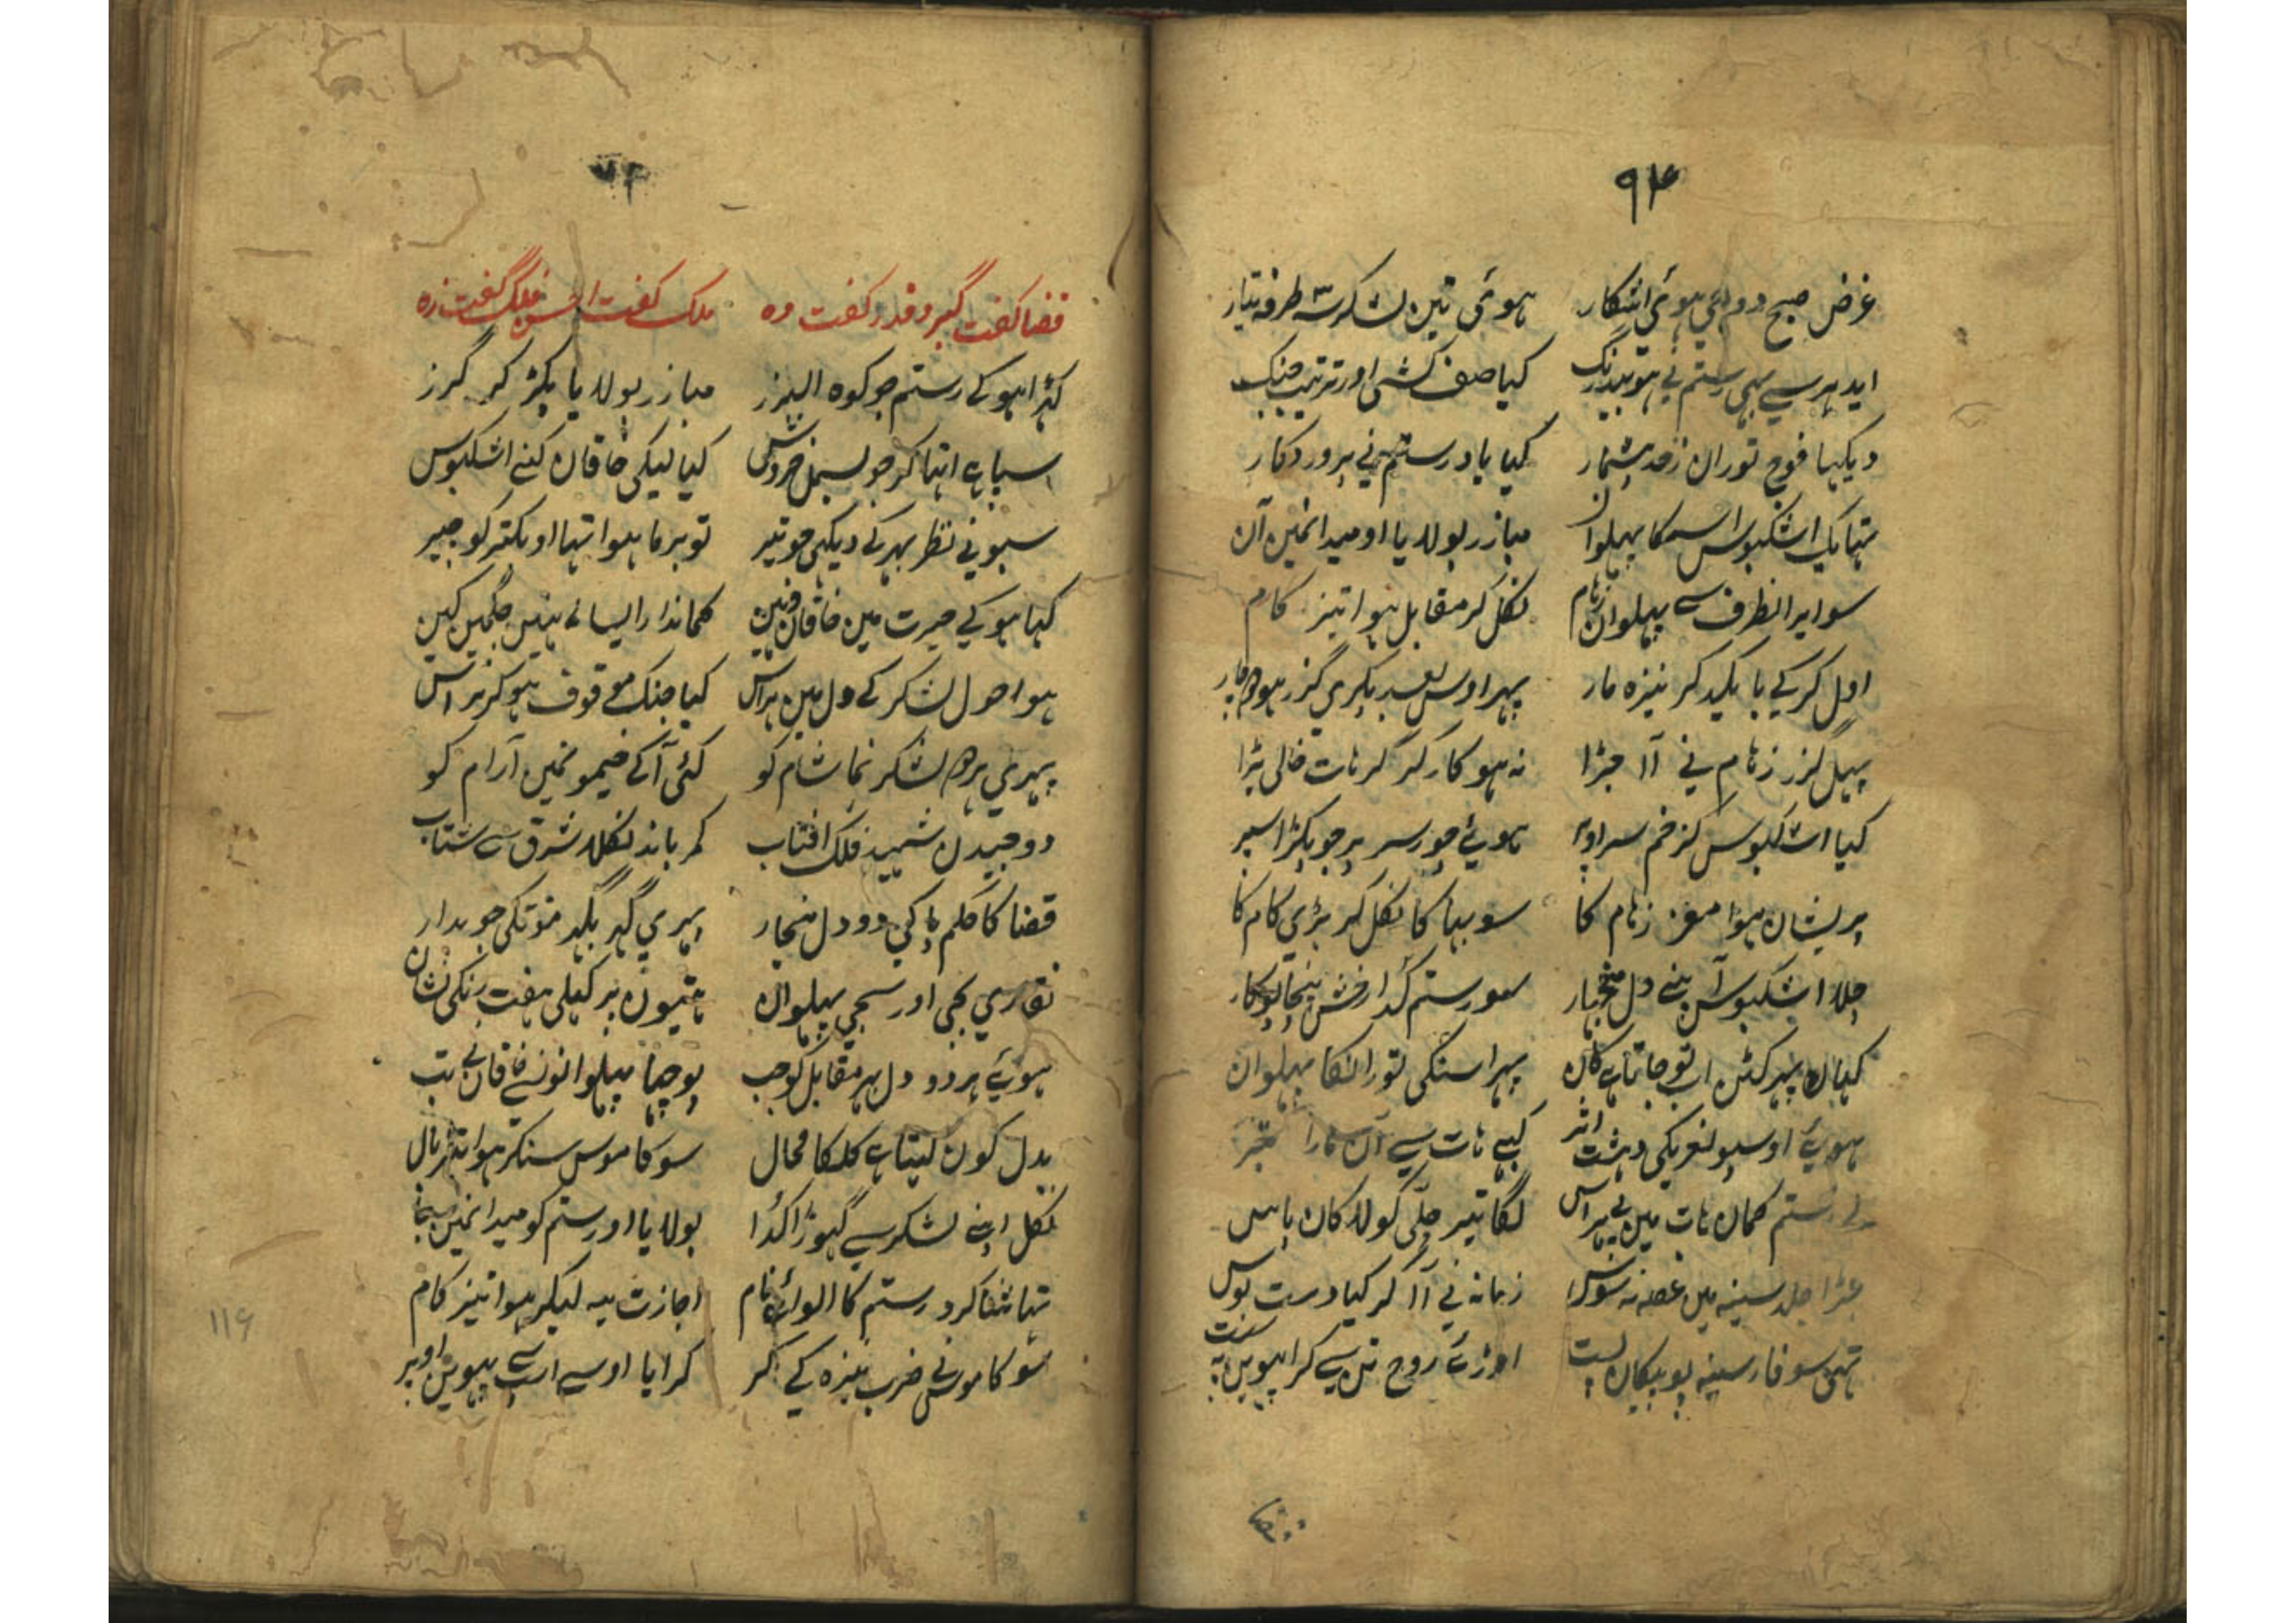 ۹۴
غرض صبح دوہی ہوئی اشکار ہوئی تین لشکر سہ طرفہ تیار
ایدہر سے بہی رستم نے ہو بیدرنگ کیا صف کشی اور ترتیب جنک
دیکہا فوج توران زحد بیشمار کیا یاد رستم نے پروردکار
تہا یک اشکبوس اسکا پہلوان مبازر بولایا او میدانمین آن
سو ایرانطرف سے پہلوان زہام نکل کر مقابل ہوا تیز کام
اول کرکے یا یکیدکر نیزہ مار پہر اوس بعد پکری گزر
پہیل گزر زہام نے آ جڑا نہ ہو کارکر کر ہات خالی پڑا
کیا اشکبوس گز خم سر اوپر ہوئے چور سر پر جو پکڑا سپر
پریشان ہوا مغز زہام کا سو بہاکا نکل کر بڑی کام کا
چلا اشکبوس آپنے دل منجہار سو رستم کدا رخش پنچا پوکار
کہا پہر کٹن اب تو جاتا ہے کان پہرا سنکی تورانکا پہلوان
ہوئے اوسپو نعریکی دہشت اثر کہے ہات سے آن مارا تبر
لے رستم کمان ہات مین بے ہراس لگا تیر چلّی کو لا کان پاس
جڑا جلد سینہ مین غصہ نہ سوس زمانہ نے آ کر کیا دست بوس
تہی سوفار سینہ پو پیکان پست اوڑے روح تن سے کرا
۷۳
قضا کفت گیر و قدر کفت دہ ملک کفت احسن فلک گفت زہ
کڈا ہو کے رستم جو کوہ البرز مبازر بولایا پکڑ کر گرز
اسپاہے انہا کر جو بسمل خروش کیا لیکی خاقان کنے اشکبوس
سبو نے نظر بہر کے دیکہی جو تیر تو برما ہوا تہا او بکتر کو چیر
کہا ہو کے حیرت مین خاقان وہین کماندار ایسا نے نہین جگمین کہین
ہوا ہول لشکر کے دل مین ہراس کیا جنک موقوف ہو کر نراس
پہری ہر دو لشکر نما شام کو کئی آ کے خیمونمین آرام کو
دو جیدن شہید فلک افتاب کمر باند نکلا شرق سے شتاب
قضا کا حکم پا کے دو دل منجار پہری گہر بگہر موتکی چوبدار
نقاری بجی اور سجی پہلوان ہتیون پر کہلی ہفت رنکی نشان
ہوئے ہر دو دل پہر مقابل کو جب پوچہا پہلوانونسے خاقان نے تب
بدل کون لیتا ہے کلکا محال سو کاموس سنکر ہوا
نکل اپنے لشکر سے گہوڑا کدا بولایا اور رستم کو میدانمین
تہا شاکرد رستم کا الوائے نام اجازت یہ لیکر ہوا تیز کام
سو کاموس نے ضرب نیزہ کے کر کرایا اوسے اسپ سے بہوین اوپر
۱۱۶